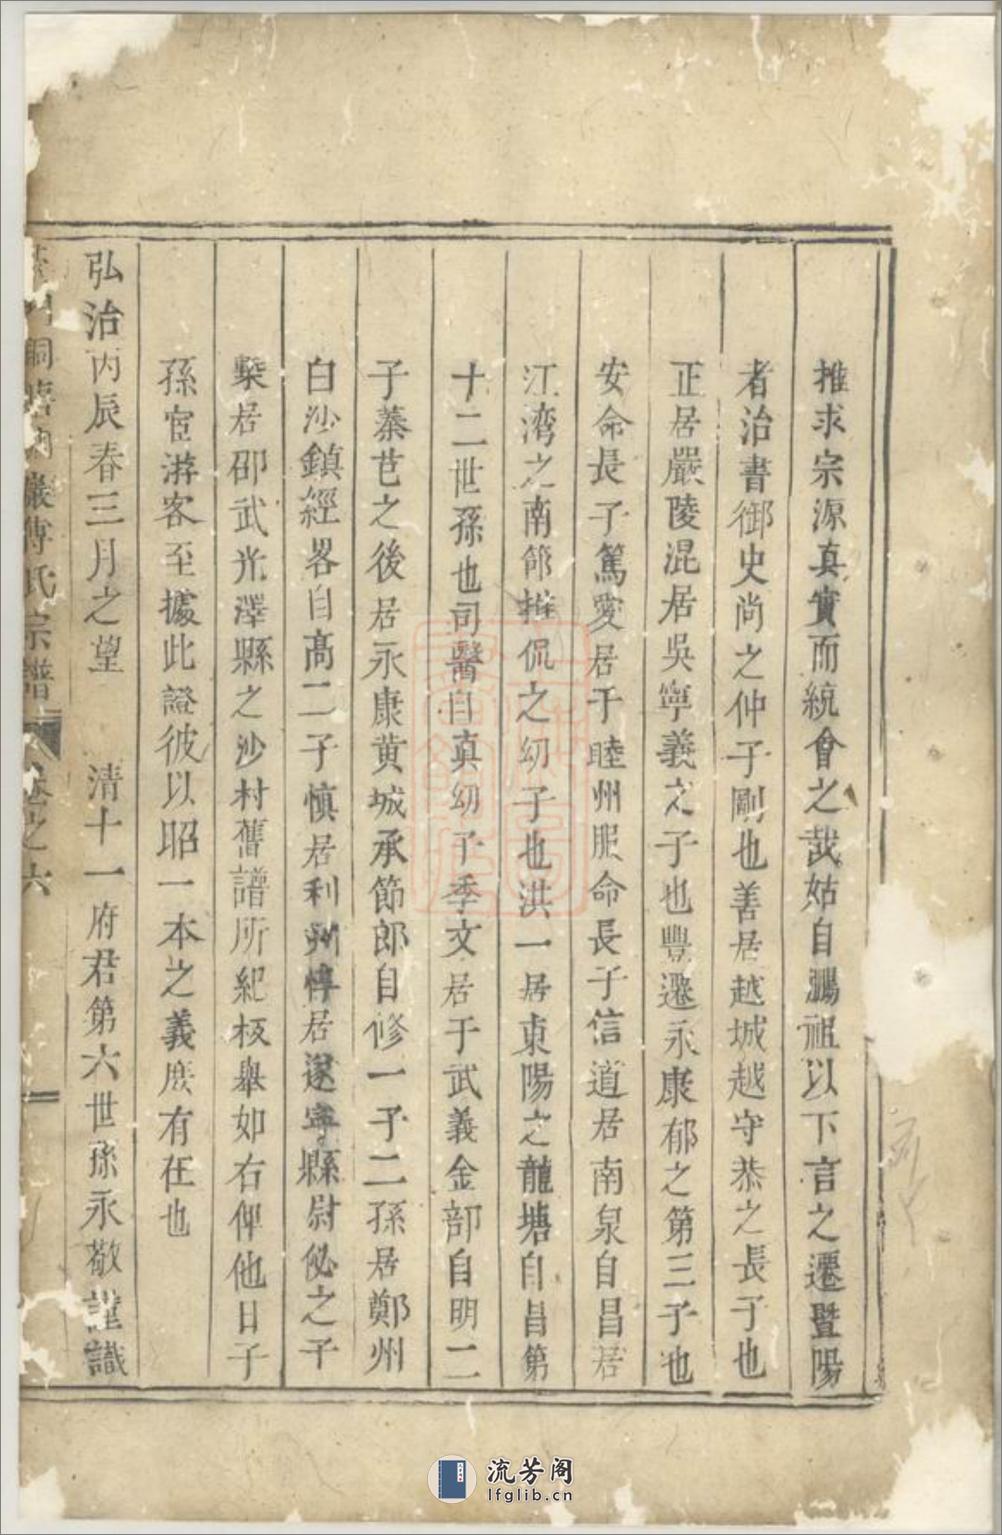 推求宗源真實而統會之哉姑自鵬祖以下言之遷暨陽
者治書御史尚之仲子剛也善居越城越守恭之長子也
正居嚴陵混居吳寧義之子也豐遷永康郁之第三子也
安命長子篤愛居于睦州服命長子信道居南泉自昌居
江湾之南節推侃之幼子也洪一居東陽之龍塘自昌第
十二世孫也司醫自真幼子季文居于武義金部自明二
子蓁芑之後居永康黄城承節郎自修一子二孫居鄭州
白沙鎮經畧自高二子慎居利州惇居遂寧縣尉佖之子
槩居邵武光澤縣之沙村舊譜所紀板舉如右俾他日子
孫宦游客至據此證彼以昭一本之義庶有在也
弘治丙辰春三月之望 清十一府君第六世孫永敬謹識
巖傅氏宗譜 卷之六
流芳阁
lfglib.cn